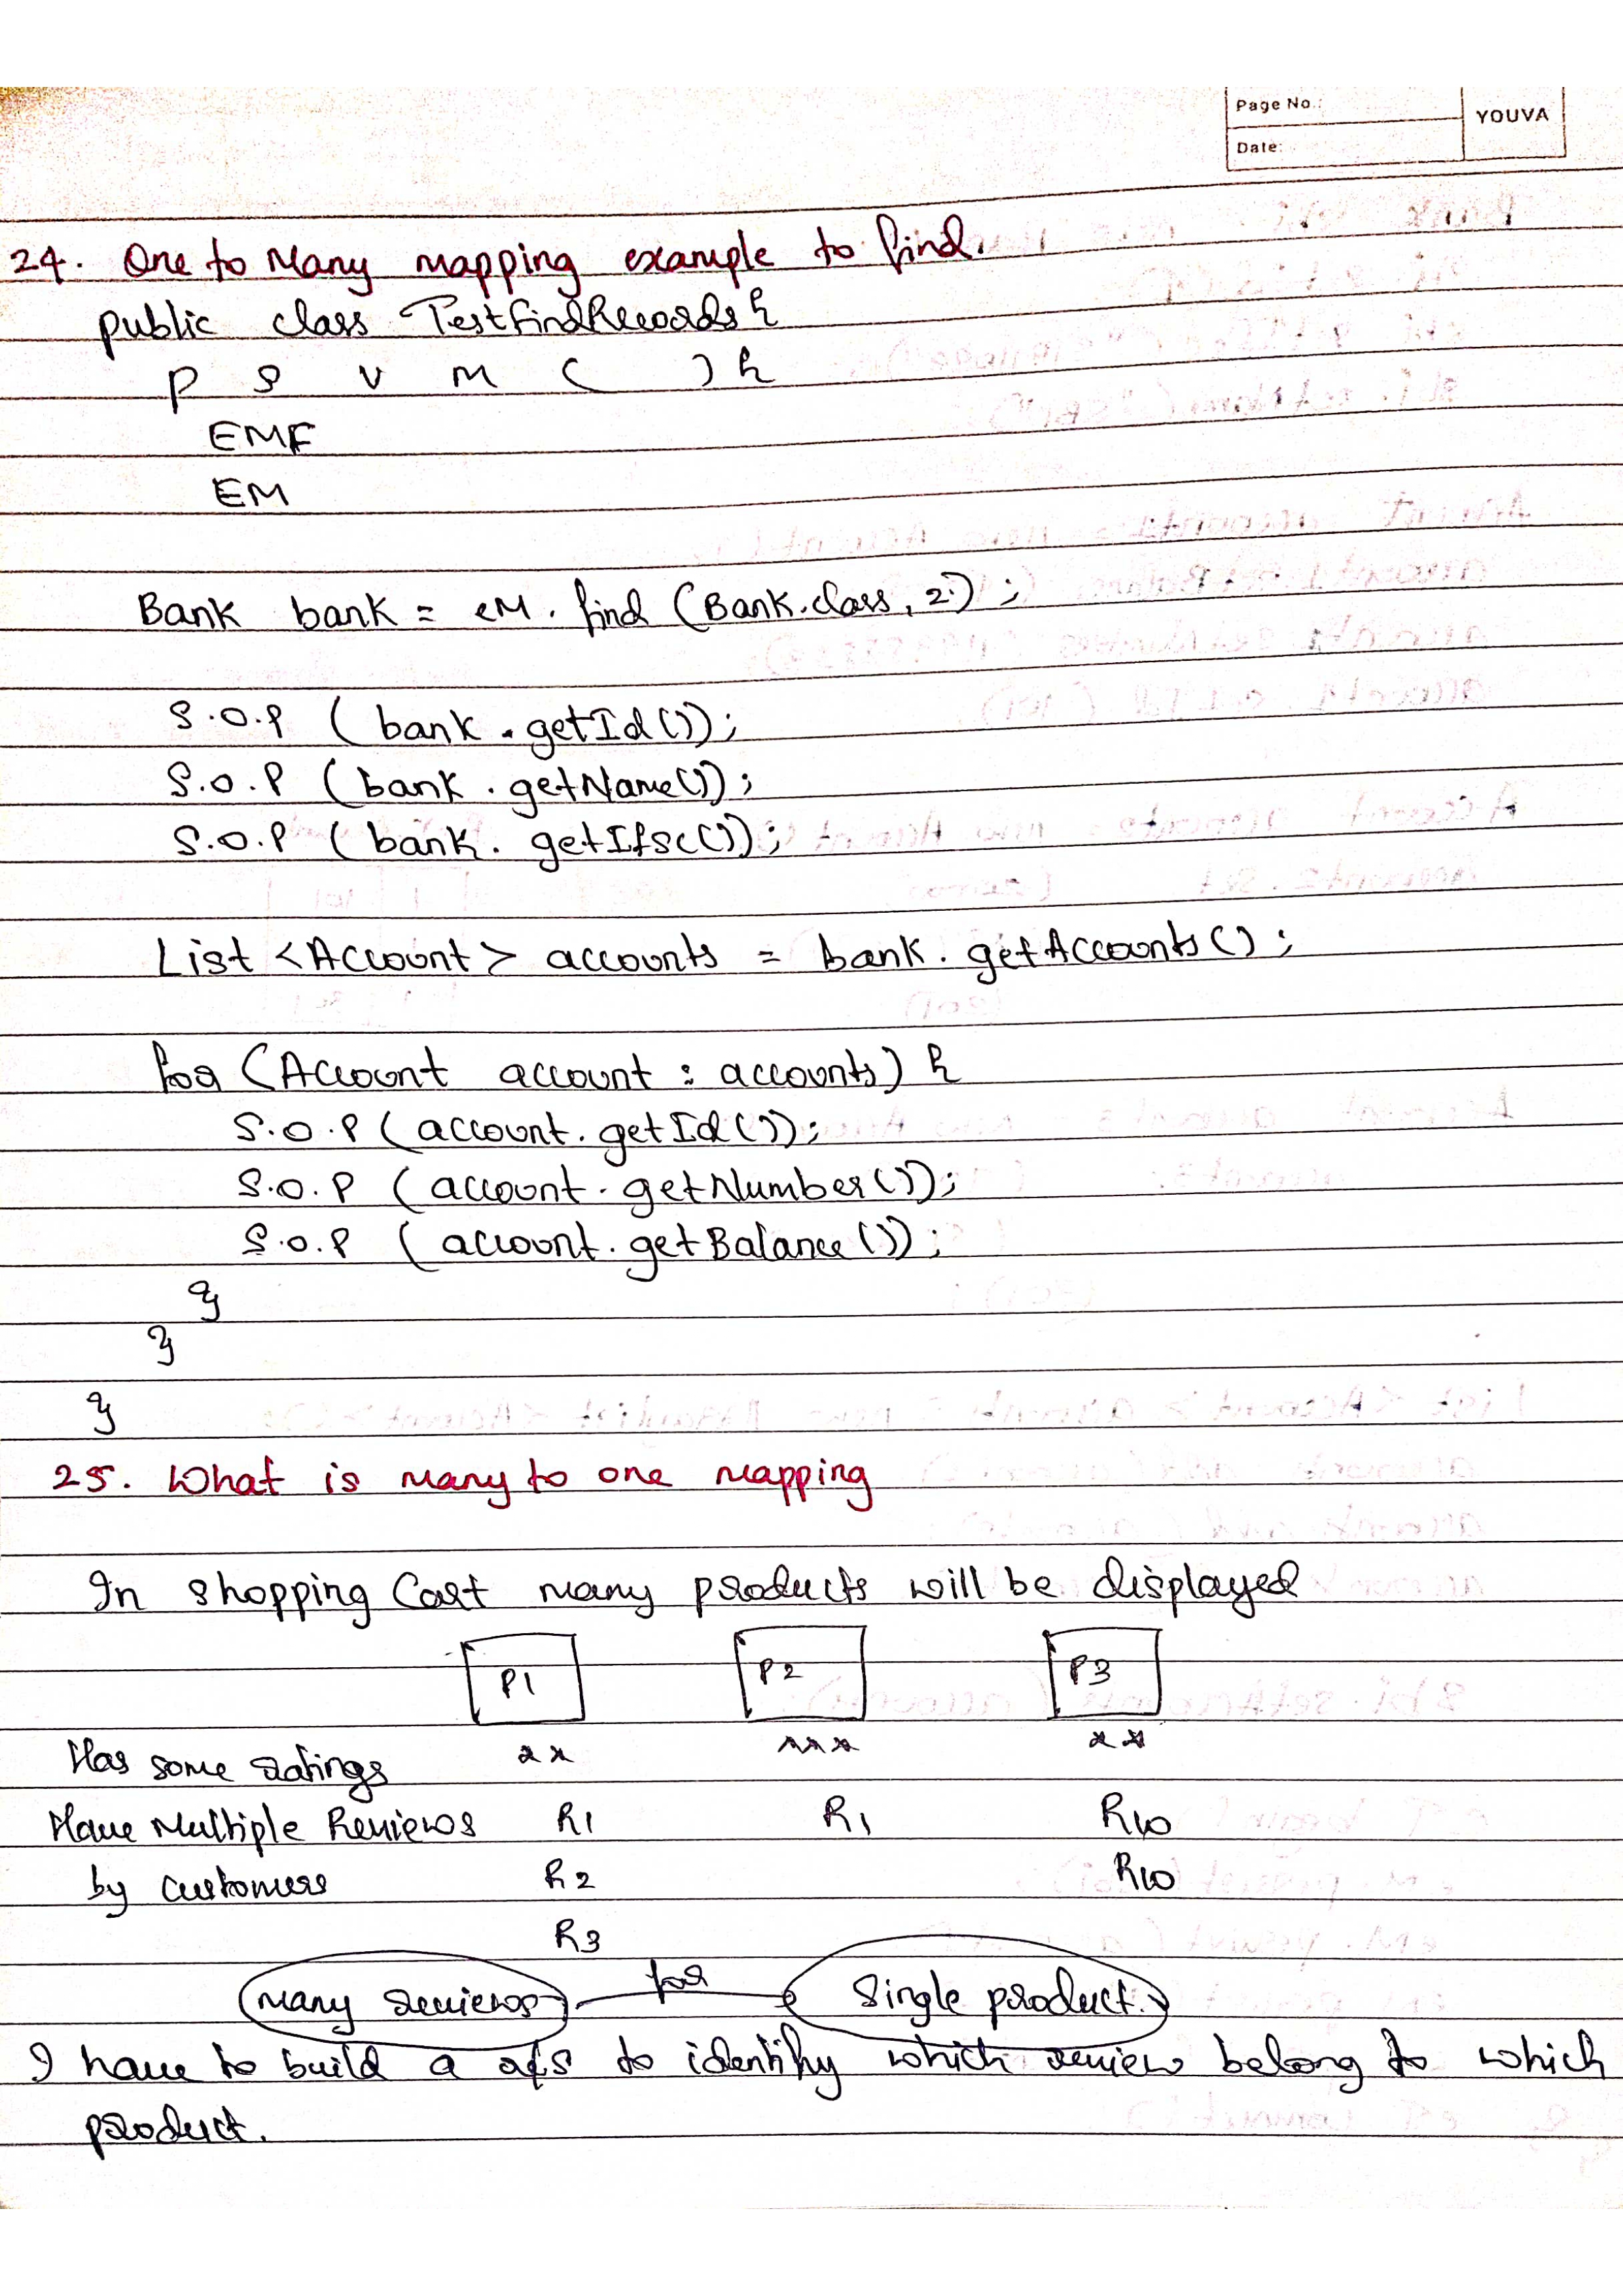 Page No.:
YOUVA
Date:
24. One to Many mapping example to find.
public class TestFindRecords {
P S V M ( ) {
EMF
EM
Bank bank = eM. find (Bank.class, 2);
S.O.P ( bank . getId());
S.O.P (bank . getName());
S.O.P ( bank. getIfsc());
List <Account> accounts = bank. getAccounts();
for (Account account : accounts) {
S.O.P ( account. getId());
S.O.P ( account. getNumber());
S.O.P ( account. getBalance());
}
}
}
25. What is many to one mapping
In shopping Cart many products will be displayed
P1 P2 P3
Has some ratings ** *** **
Have Multiple Reviews R1 R1 R10
by customers R2 R10
R3
many reviews for Single product.
I have to build a r/s to identify which review belong to which
product.